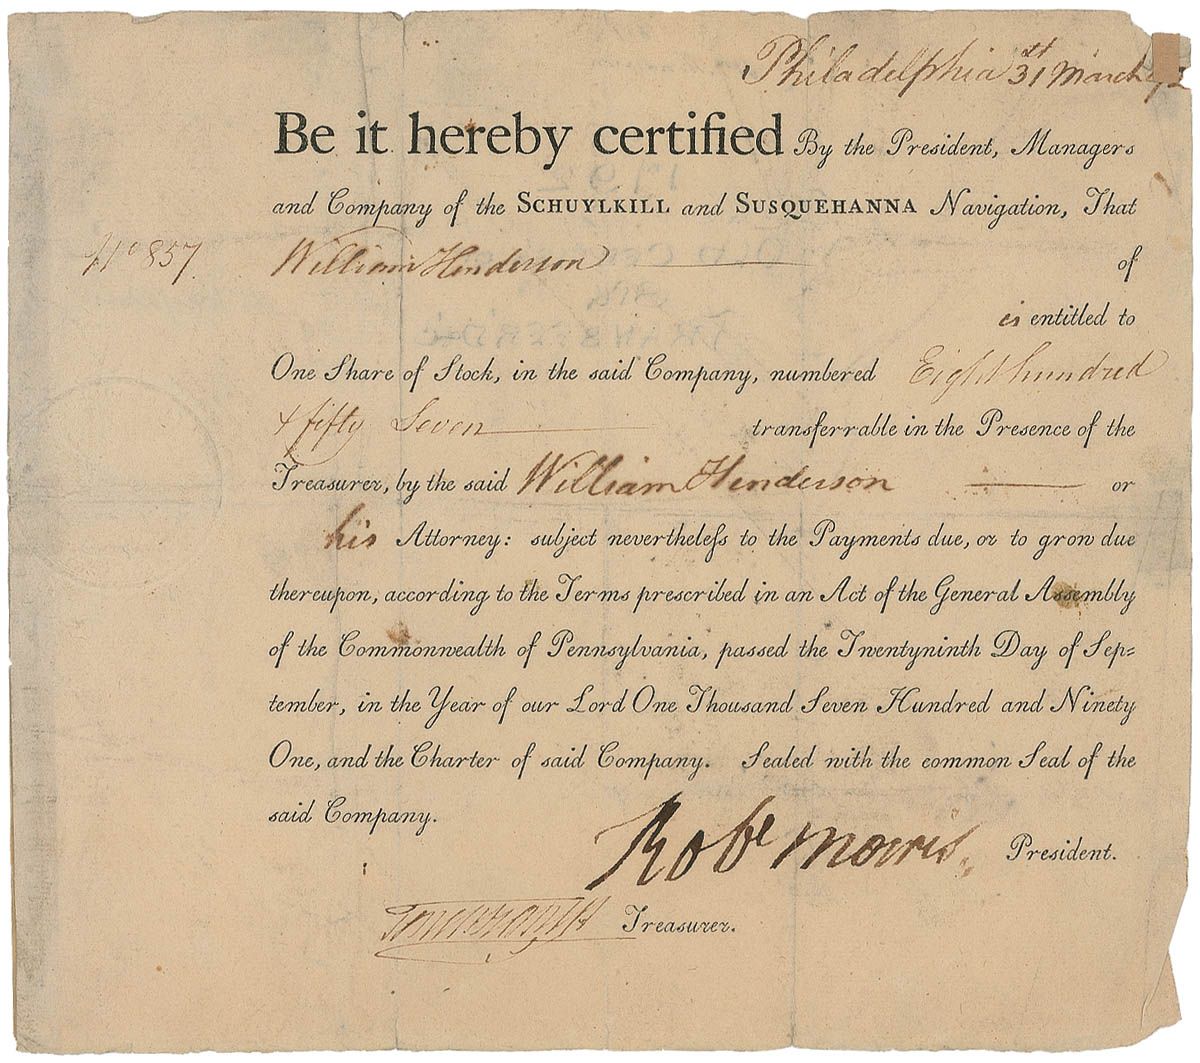 Philadelphia 31st March
Be it hereby certified By the President, Managers
and Company of the SCHUYLKILL and SUSQUEHANNA Navigation, That
No 857 William Henderson of
is entitled to
One Share of Stock, in the said Company, numbered Eight hundred
& fifty Seven transferrable in the Presence of the
Treasurer, by the said William Henderson or
his Attorney: subject neverthelefs to the Payments due, or to grow due
thereupon, according to the Terms prescribed in an Act of the General Assembly
of the Commonwealth of Pennsylvania, passed the Twentyninth Day of Sep=
tember, in the Year of our Lord One Thousand Seven Hundred and Ninety
One, and the Charter of said Company. Sealed with the common Seal of the
said Company.
Robt Morris President.
Treasurer.